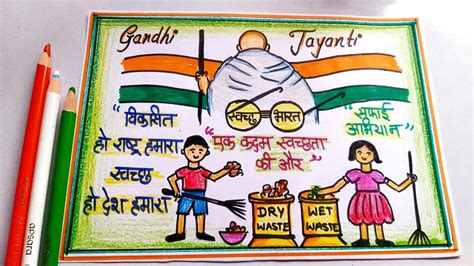 Gandhi Jayanti
स्वच्छ भारत
"विकसित
हो राष्ट्र हमारा
स्वच्छ
हो देश हमारा"
"एक कदम स्वच्छता
की और"
"सफाई
अभियान"
DRY
WASTE
WET
WASTE
apsara